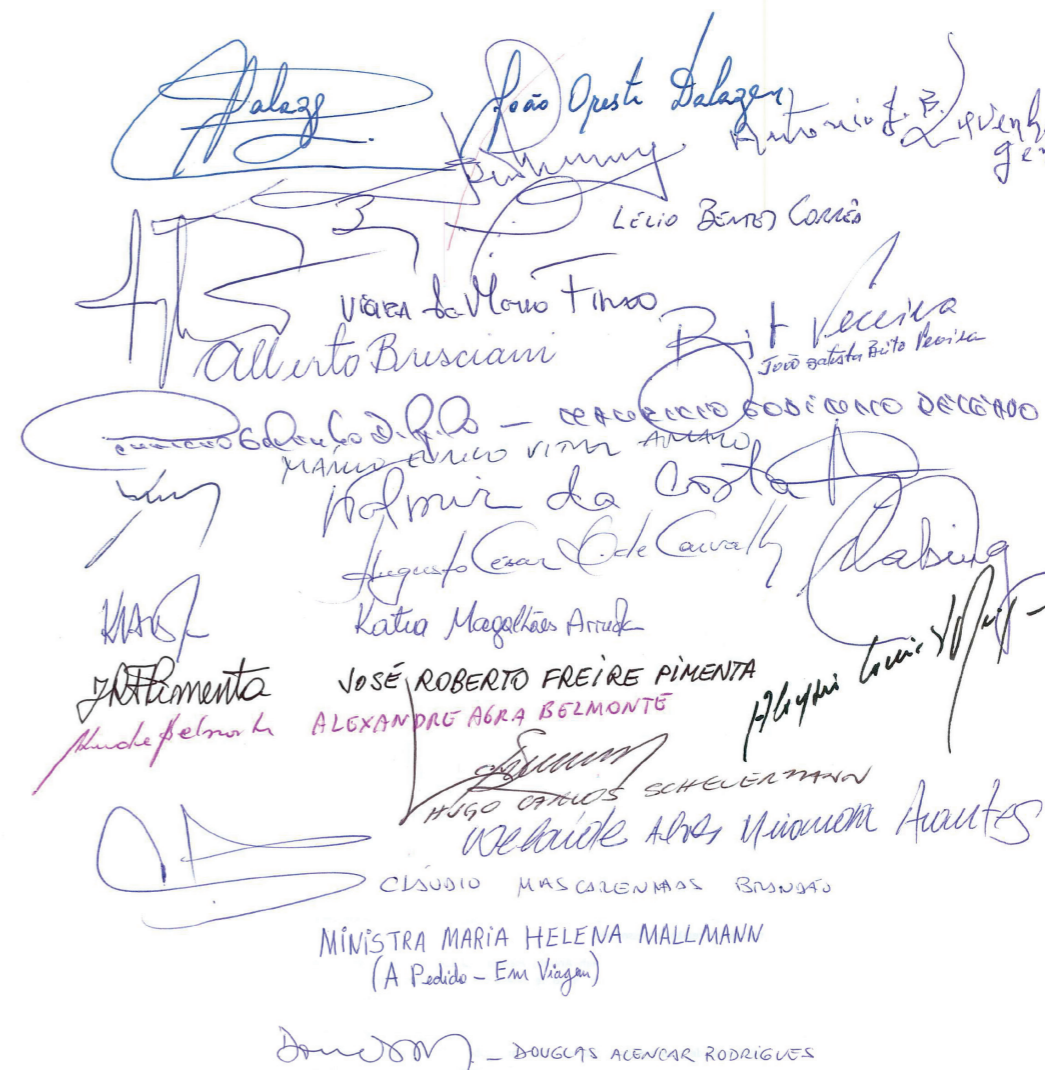 Dalaz João Oreste Dalazen
Antonio J. B. Levenh
gen
LELIO BENTES CORRÊA
VIEIRA de Mello Filho
Alberto Bresciani
Brito Pereira
João Batista Brito Pereira
MAURICIO GODINHO DELGADO
MÁRCIO EURICO VITRAL AMARO
Walmir da Costa
Augusto César L. de Carvalho
Katia Magalhães Arruda
JRFPimenta JOSÉ ROBERTO FREIRE PIMENTA
Belmonte ALEXANDRE AGRA BELMONTE
HUGO CARLOS SCHEUERMANN
Delaíde Alves Miranda Arantes
CLÁUDIO MASCARENHAS BRANDÃO
MINISTRA MARIA HELENA MALLMANN
(A Pedido - Em Viagem)
- DOUGLAS ALENCAR RODRIGUES